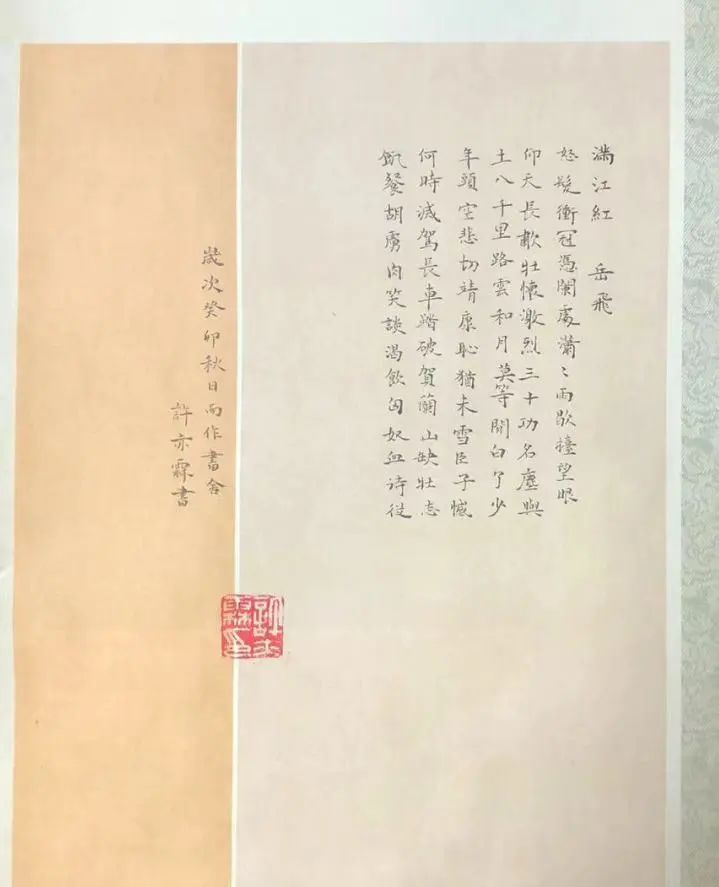 滿江紅 岳飛
怒髮衝冠憑闌處瀟〻雨歇擡望眼
仰天長歗壯懷激烈三十功名塵與
土八千里路雲和月莫等閒白了少
年頭空悲切靖康恥猶未雪臣子憾
何時滅駕長車踏破賀蘭山缺壯志
飢餐胡虜肉笑談渴飲匈奴血待從
歲次癸卯秋日而作書舍
許亦霖書
許亦霖印